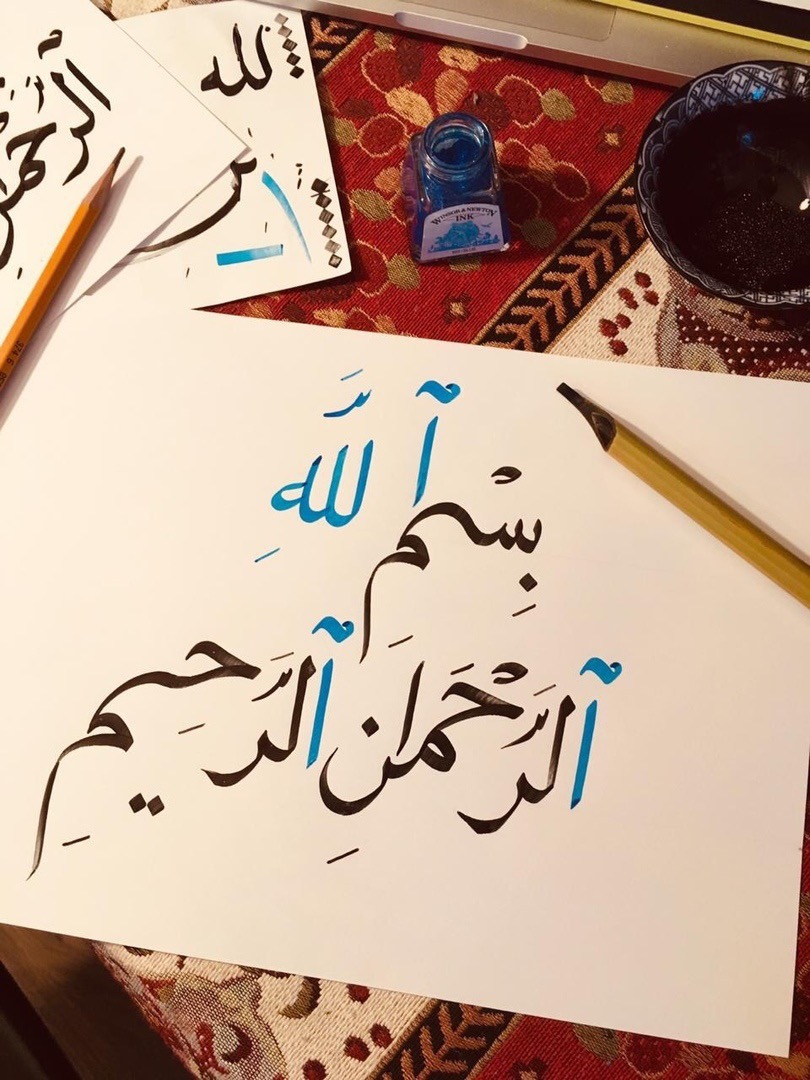 الرَّحْمٰن
لله
WINSOR & NEWTON
INK
بِسْمِ ٱللَّهِ
ٱلرَّحْمٰنِ ٱلرَّحِيمِ